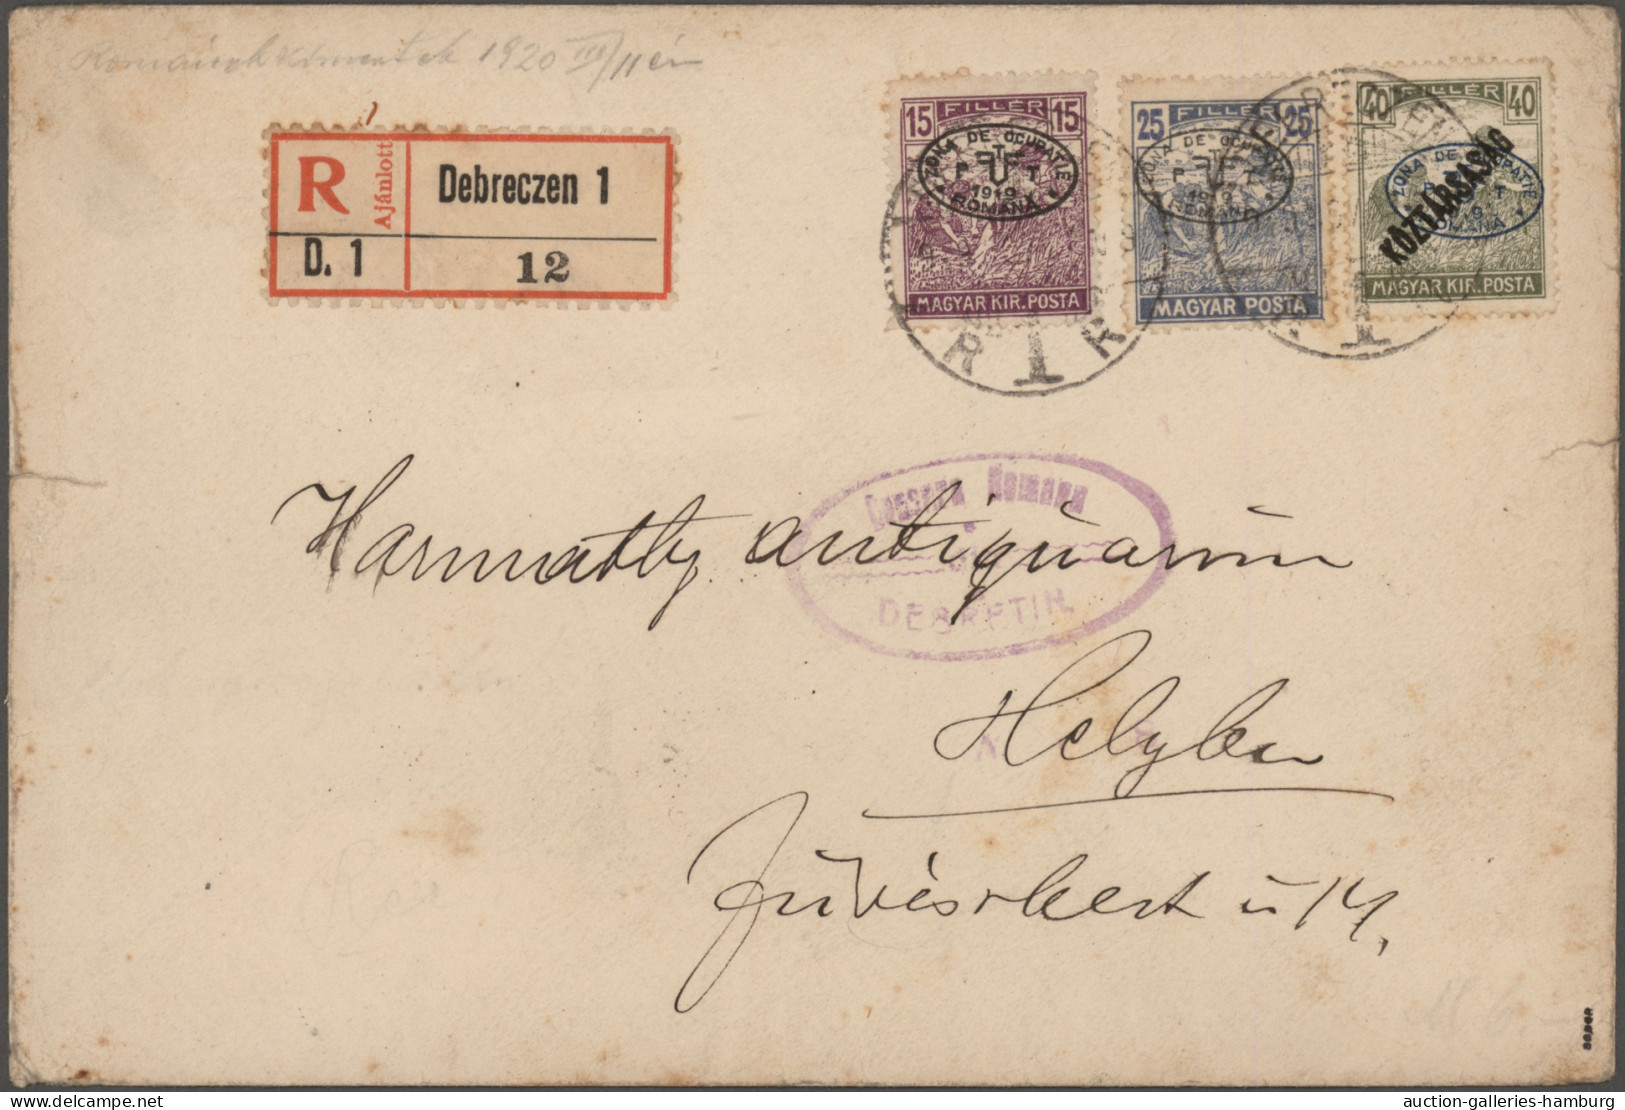 1920 III/11 én
R
Ajánlott
Debreczen 1
D. 1
12
15 FILLÉR 15
ZONA DE OCUPATIE
P T T
1919
ROMANA
MAGYAR KIR. POSTA
25 FILLÉR 25
ZONA DE OCUPATIE
P T T
1919
ROMANA
MAGYAR POSTA
40 FILLÉR 40
ZONA DE OCUPATIE
ROMANA
KÖZTÁRSASÁG
MAGYAR KIR. POSTA
Cenzura Romana
DEBRETIN
Harmathy antiquarium
Helyben
u 14.
auction-galleries-hamburg